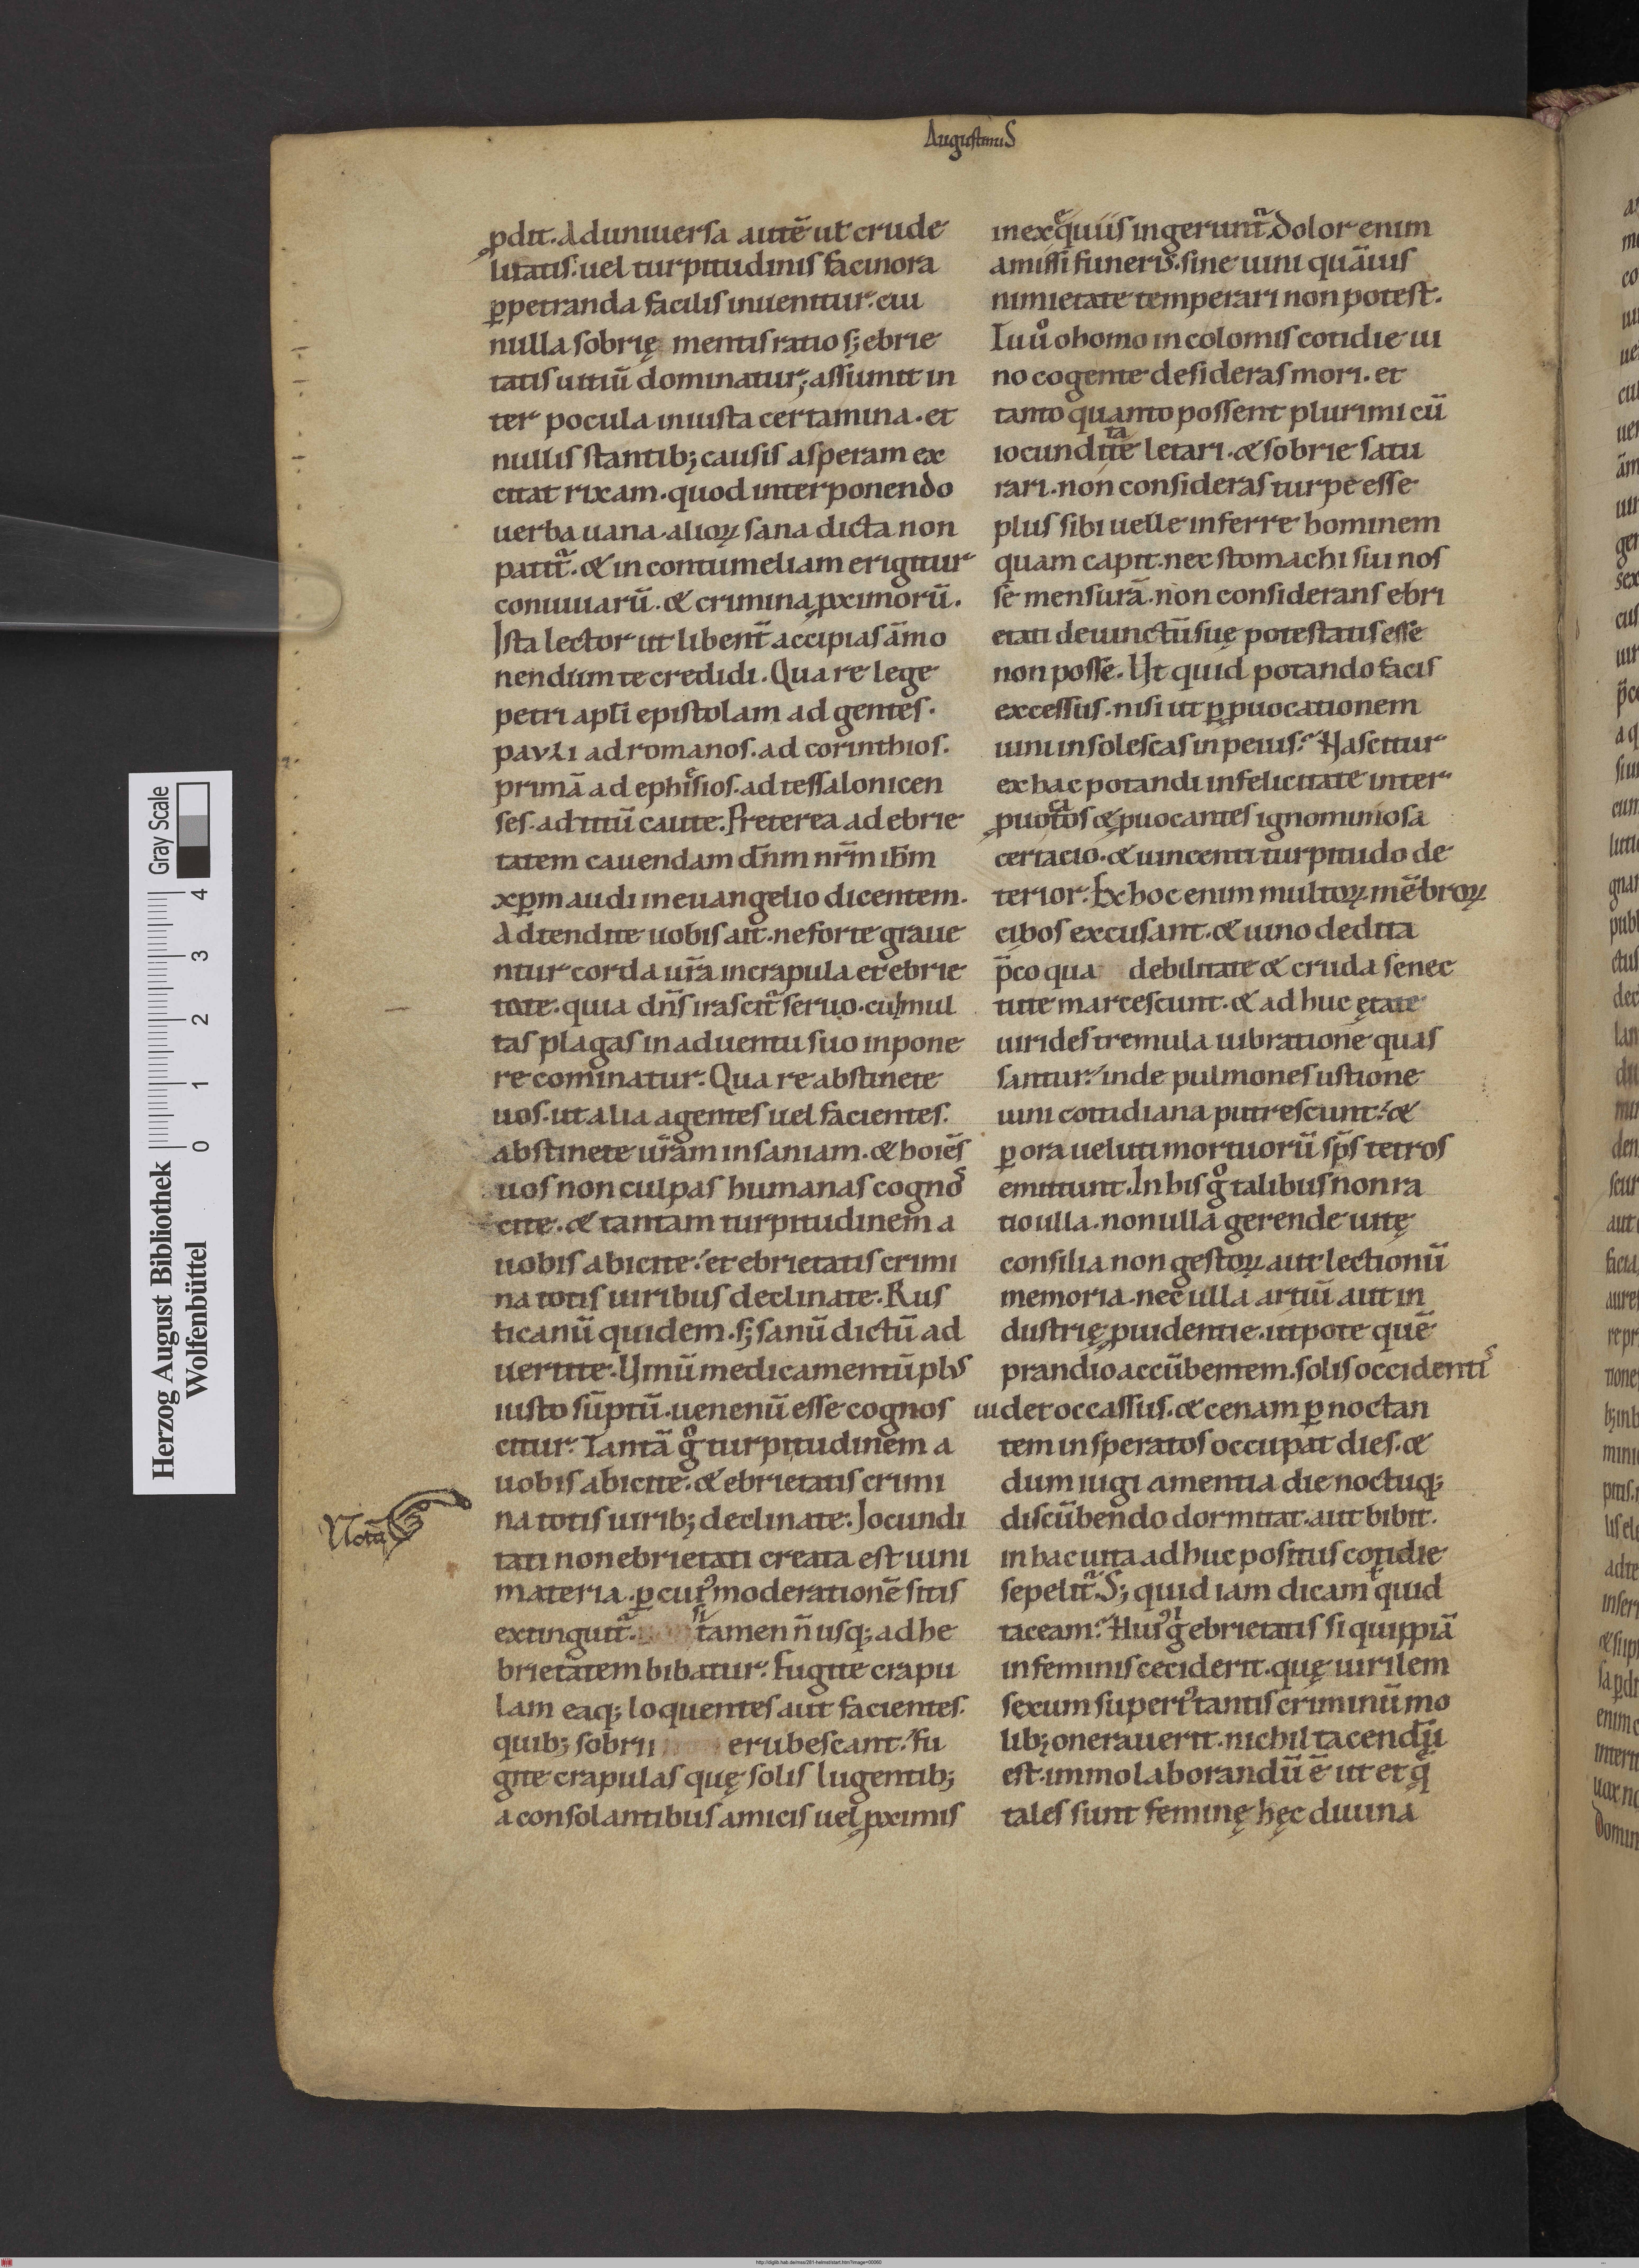 Augustinus
ꝓdit. Ad uniuersa autē ut crude
litatis. uel turpitudinis facinora
ꝑpetranda facilis inuenitur. cui
nulla sobrię mentis ratio sꝫ ebrie
tatis uitiū dominatur; assumit in
ter pocula iniusta certamina. et
nullis stantibꝫ causis asperam ex
citat rixam. quod interponendo
uerba uana alioꝝ sana dicta non
patit̃. & in contumeliam erigitur
conuiuarū. & crimina ꝓximorū.
Ista lector ut libent̃ accipias āmo
nendum te credidi. Qua re lege
petri apl̄i epistolam ad gentes.
pauli ad romanos. ad corinthios.
primā ad ephesios. ad tessalonicen
ses. ad titū caute. Preterea ad ebrie
tatem cauendam dn̄m nr̄m ih̄m
xp̄m audi in euangelio dicentem.
Adtendite uobis ait. ne forte graue
ntur corda ur̄a in crapula et ebrie
tate. quia dn̄s irascit̃ seruo. cui mul
tas plagas in aduentu suo inpone
re cominatur. Qua re abstinete
uos. ut alia agentes uel facientes.
abstinete ur̄am insaniam. & hoīes
uos non culpas humanas cognos
cite. & tantam turpitudinem a
uobis abicite. et ebrietatis crimi
na totis uiribus declinate. Rus
ticanū quidem. sꝫ sanū dictū ad
uertite. Vinū medicamentū plus
iusto sūptū. uenenū esse cognos
citur. Tantā gͦ turpitudinem a
uobis abicite. & ebrietatis crimi
Nota
na totis uiribꝫ declinate. Iocundi
tati non ebrietati creata est uini
materia. ꝑ cui᷒ moderationē sitis
extinguit̃. sic tamen n̄ usqꝫ ad he
brietatem bibatur. Fugite crapu
lam eaqꝫ loquentes aut facientes.
quibꝫ sobrii erubescant. Fu
gite crapulas quę solis lugentibꝫ
a consolantibus amicis uel ꝓximis
in exequiis ingerunt̃. Dolor enim
amissi funeris. sine uini quāuis
nimietate temperari non potest.
Tu ūͦ o homo incolomis cotidie ui
no cogente desideras mori. et
tanto quanto possent plurimi cū
iocunditate letari. & sobrie satu
rari. non consideras turpe esse
plus sibi uelle inferre hominem
quam capit. nec stomachi sui nos
se mensurā. non considerans ebri
etati deuinctū suę potestatis esse
non posse. Ut quid potando facis
excessus. nisi ut ꝑ ꝓuocationem
uini insolescas in peius. Nascitur
ex hac potandi infelicitate inter
ꝓuocatos & ꝓuocantes ignominiosa
certacio. & uincenti turpitudo de
terior. Ex hoc enim multoꝝ mēbroꝝ
cibos excusant. & uino dedita
p̄co qua debilitate & cruda senec
tute marcescunt. & ad huc ętate
uirides tremula uibratione quas
santur. inde pulmones ustione
uini cotidiana putrescunt. &
ꝑ ora ueluti mortuorū sp̄s tetros
emittunt. In his gͦ talibus non ra
tio ulla. non ulla gerende uitę
consilia non gestoꝝ aut lectionū
memoria. nec ulla artiū aut in
dustrię ꝓuidentie. utpote quē
prandio accūbentem. solis occidentis
uidet occassus. & cenam ꝑ noctan
tem insperatos occupat dies. &
dum iugi amentia die noctuqꝫ
discūbendo dormitat. aut bibit.
in hac uita adhuc positus cotidie
sepelit̃. Sꝫ quid iam dicam quid
taceam. Hui᷒ gͥ ebrietatis si quippiā
in feminis ceciderit. quę uirilem
sexum superi᷒ tantis criminū mo
libꝫ onerauerit. nichil tacendū
est. immo laborandū ē ut et q̄
tales sunt feminę hęc diuina
Herzog August Bibliothek
Wolfenbüttel
0 1 2 3 4
Gray Scale
http://diglib.hab.de/mss/281-helmst/start.htm?image=00060